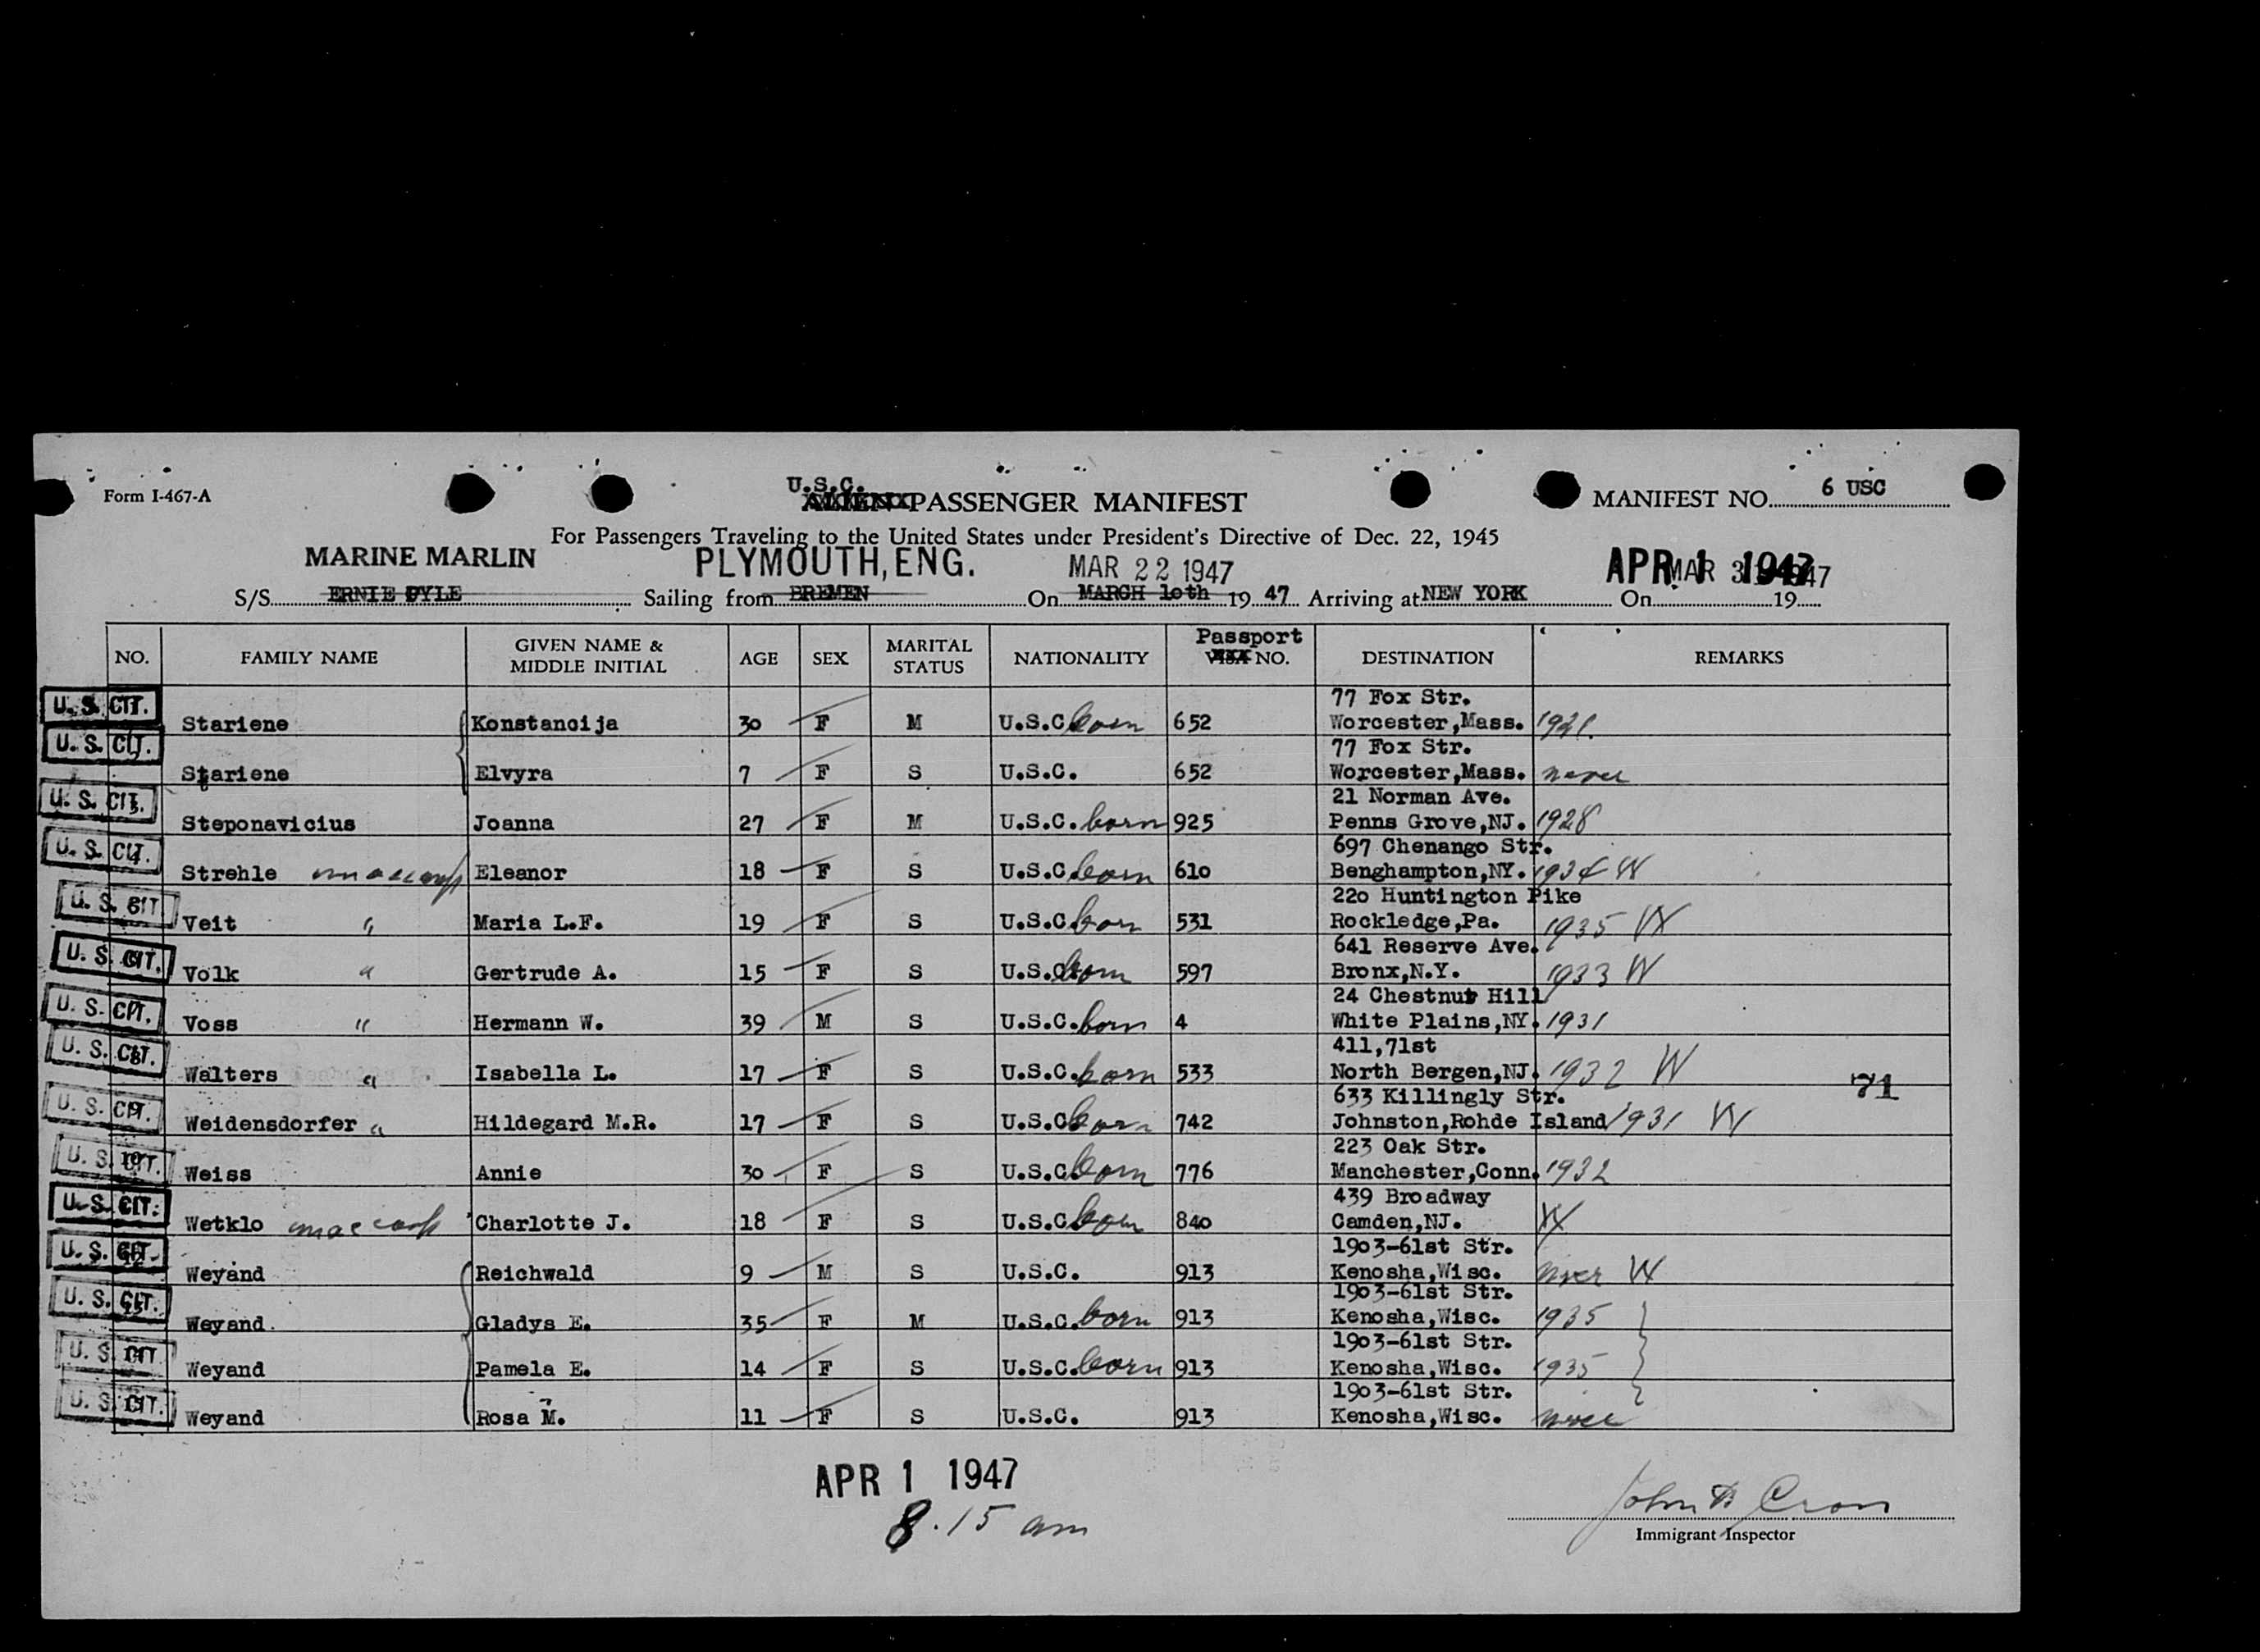 Form I-467-A
U.S.C.
ALIEN PASSENGER MANIFEST
MANIFEST NO. 6 USC
For Passengers Traveling to the United States under President's Directive of Dec. 22, 1945
MARINE MARLIN PLYMOUTH, ENG. MAR 22 1947 APR 1 1947
S/S ERNIE PYLE Sailing from BREMEN On MARCH 10th 19 47 Arriving at NEW YORK On 19
NO. FAMILY NAME GIVEN NAME & MIDDLE INITIAL AGE SEX MARITAL STATUS NATIONALITY Passport VISA NO. DESTINATION REMARKS
77 Fox Str.
U. S. CIT. Stariene Konstancija 30 F M U.S.C born 652 Worcester,Mass. 1921.
77 Fox Str.
U. S. CIT. Stariene Elvyra 7 F S U.S.C. 652 Worcester,Mass. never
21 Norman Ave.
U. S. CIT. Steponavicius Joanna 27 F M U.S.C. born 925 Penns Grove,NJ. 1928
697 Chenango Str.
U. S. CIT. Strehle unaccomp Eleanor 18 F S U.S.C. born 610 Benghampton,NY. 1934 W
220 Huntington Pike
U. S. CIT Veit " Maria L.F. 19 F S U.S.C. born 531 Rockledge,Pa. 1935 W
641 Reserve Ave.
U. S. CIT. Volk " Gertrude A. 15 F S U.S.C. born 597 Bronx,N.Y. 1933 W
24 Chestnut Hill
U. S. CIT. Voss " Hermann W. 39 M S U.S.C. born 4 White Plains,NY. 1931
411,71st
U. S. CIT. Walters " Isabella L. 17 F S U.S.C. born 533 North Bergen,NJ. 1932 W
71
633 Killingly Str.
U. S. CIT. Weidensdorfer " Hildegard M.R. 17 F S U.S.C born 742 Johnston,Rohde Island 1931 W
223 Oak Str.
U. S. CIT. Weiss Annie 30 F S U.S.C born 776 Manchester,Conn. 1932
439 Broadway
U. S. CIT. Wetklo unaccomp Charlotte J. 18 F S U.S.C born 840 Camden,NJ. W
1903-61st Str.
U. S. CIT. Weyand Reichwald 9 M S U.S.C. 913 Kenosha,Wisc. never W
1903-61st Str.
U. S. CIT. Weyand. Gladys E. 35 F M U.S.C. born 913 Kenosha,Wisc. 1935
1903-61st Str.
U. S. CIT Weyand Pamela E. 14 F S U.S.C. born 913 Kenosha,Wisc. 1935
1903-61st Str.
U. S. CIT. Weyand Rosa M. 11 F S U.S.C. 913 Kenosha,Wisc. never
APR 1 1947
8.15 am
John B Cron
Immigrant Inspector